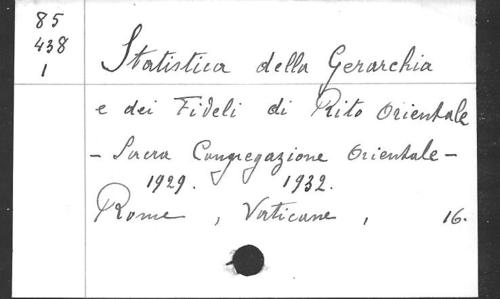 85
438
1
Statistica della Gerarchia
e dei Fideli di Rito Orientale
- Sacra Congregazione Orientale -
1929. 1932.
Rome, Vaticane, 16.